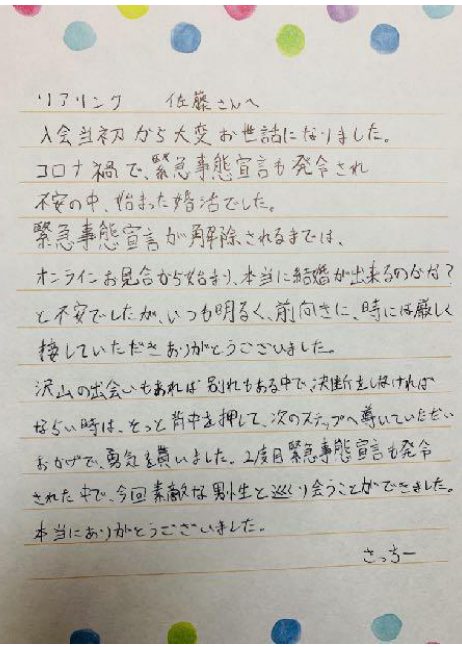 リアリンク 佐藤さんへ
入会当初から大変お世話になりました。
コロナ禍で、緊急事態宣言も発令され
不安の中、始まった婚活でした。
緊急事態宣言が解除されるまでは、
オンラインお見合から始まり、本当に結婚が出来るのかな?
と不安でしたが、いつも明るく、前向きに、時には厳しく
接していただきありがとうございました。
沢山の出会いもあれば別れもある中で、決断をしなければ
ならい時は、そっと背中を押して、次のステップへ導いていただい
おかげで、勇気を貰いました。2度目緊急事態宣言も発令
された中で、今回素敵な男性と巡り会うことができました。
本当にありがとうございました。
さっちー